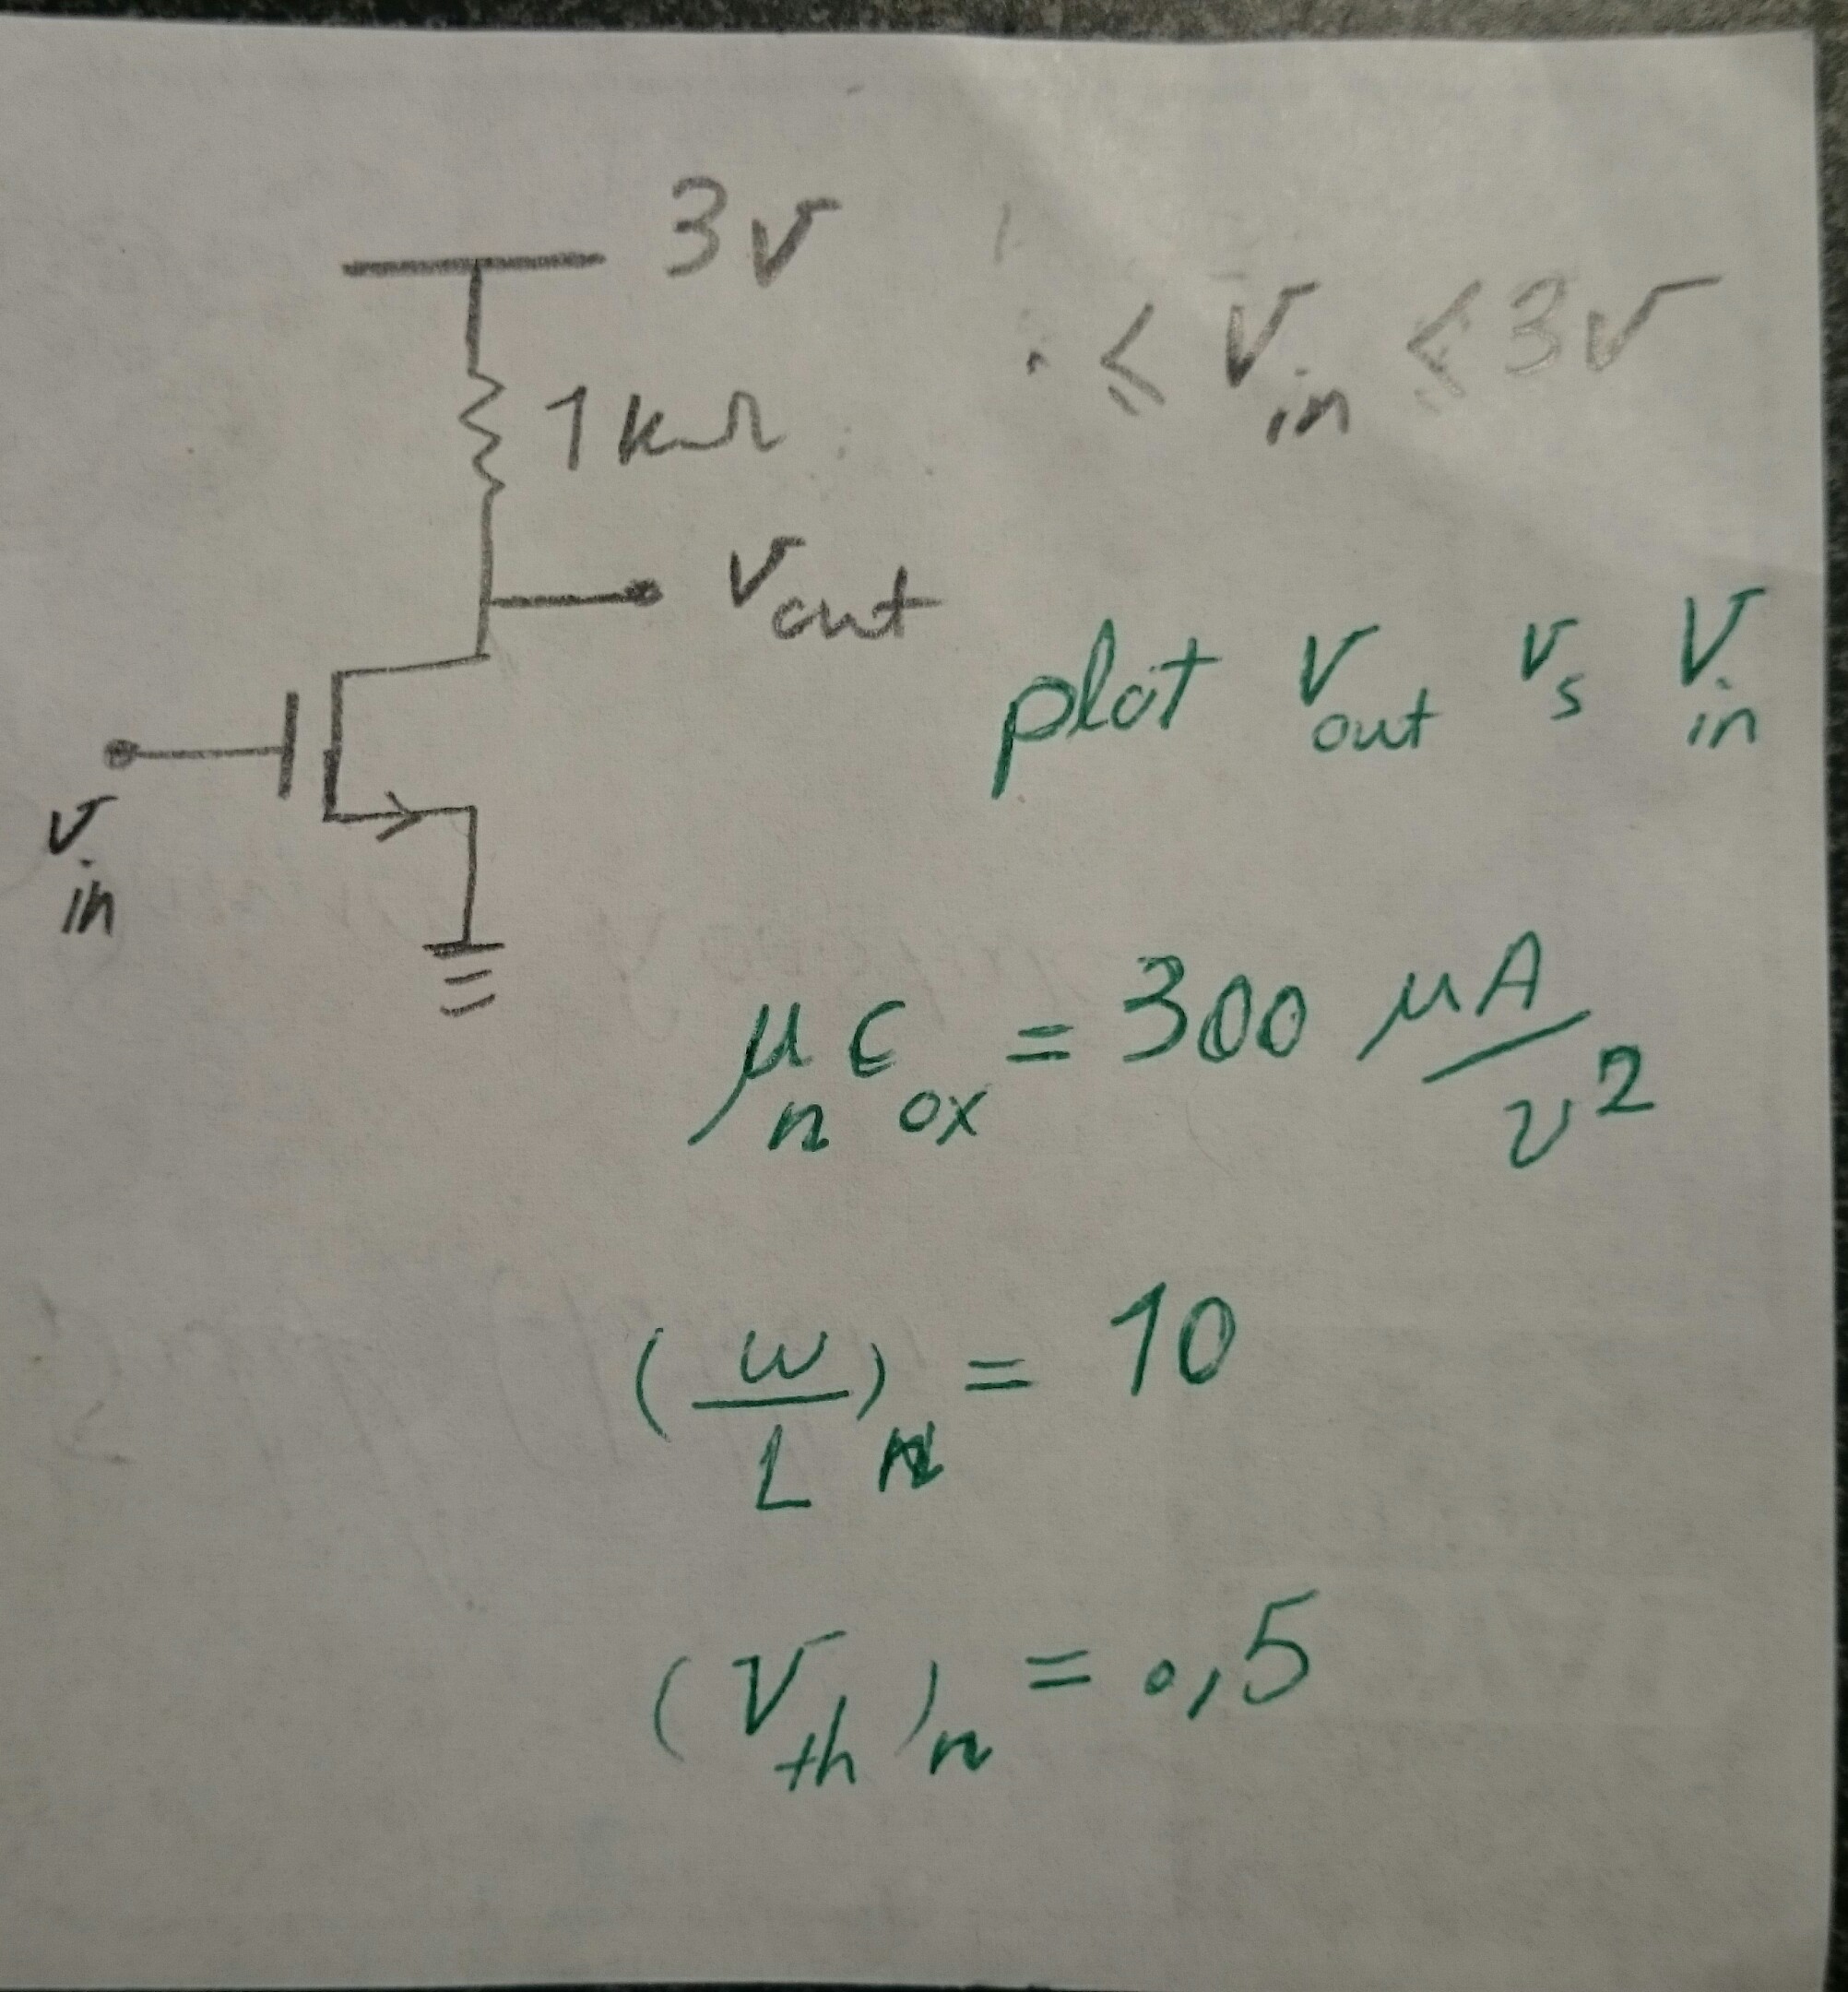 3V
. ≤ Vin ≤ 3V
1kΩ
Vout
plot Vout vs Vin
Vin
μnCox = 300 μA/V²
(W/L)n = 10
(Vth)n = 0,5